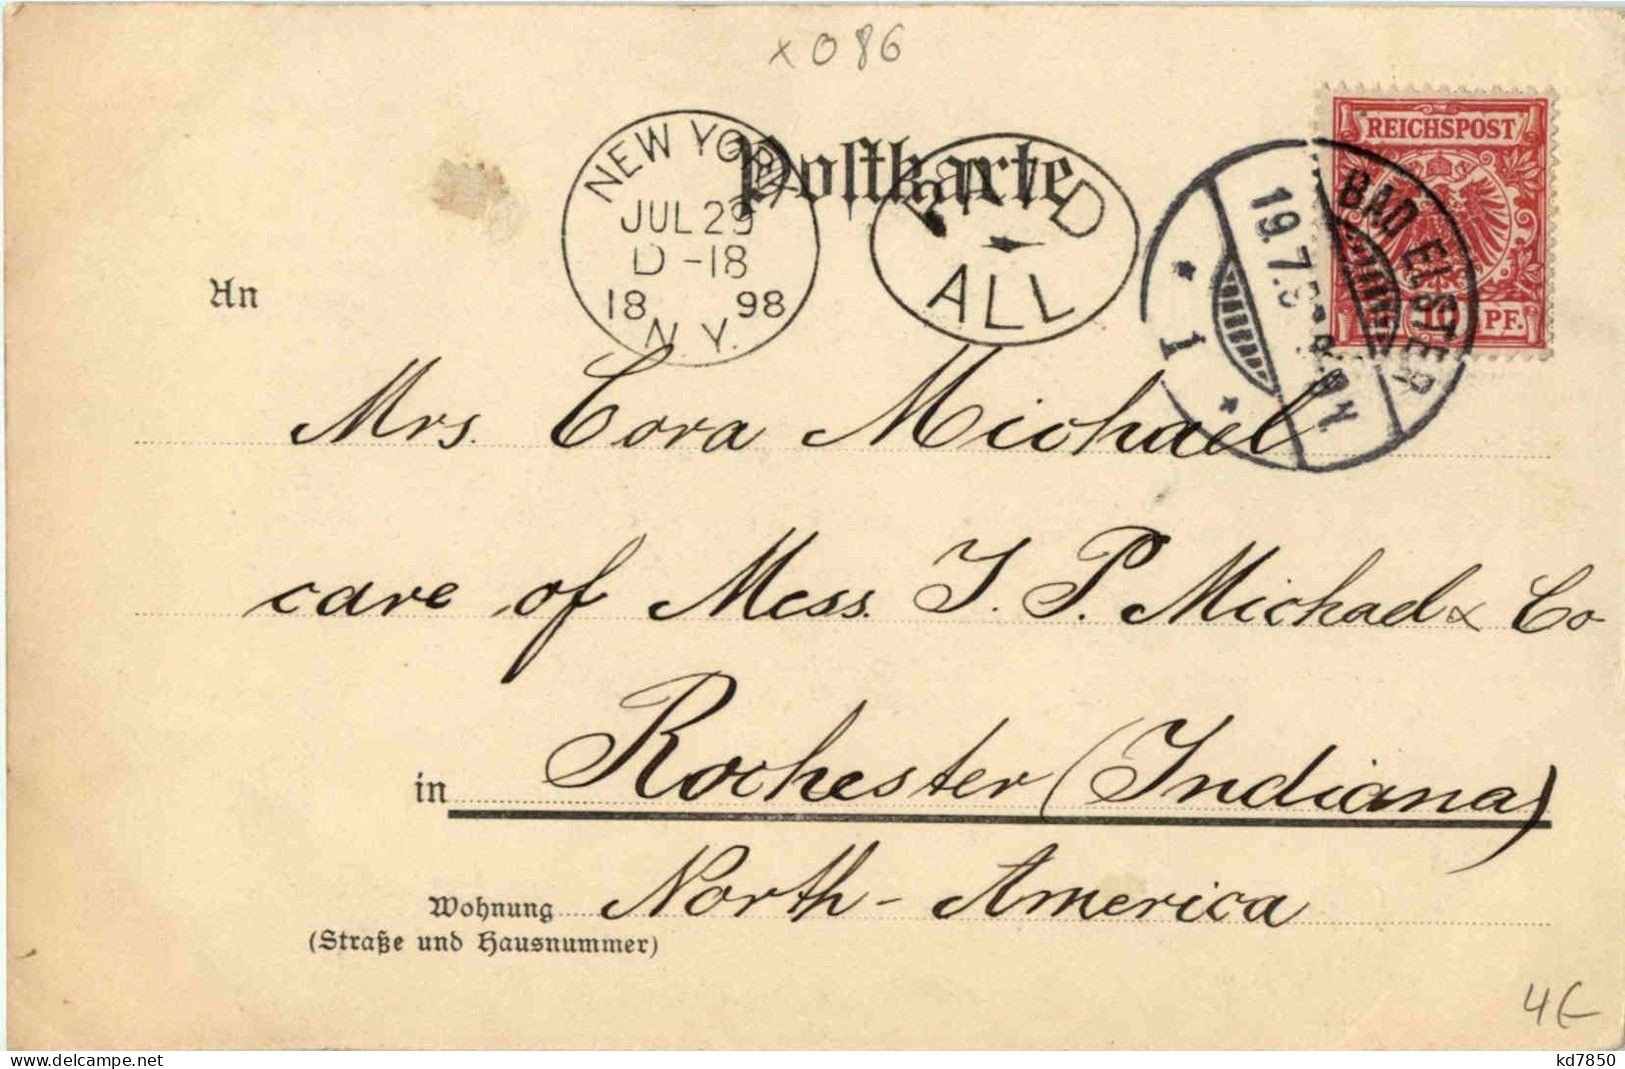 x 086
REICHSPOST
10 PF.
BAD ELSTER
19.7.
1
NEW YORK
JUL 29
D-18
18 98
N.Y.
PAID
ALL
Postkarte
An
Mrs. Cora Michael
care of Mess. J. P. Michael & Co
in Rochester (Indiana)
Wohnung North-America
(Straße und Hausnummer)
4€
kd7850